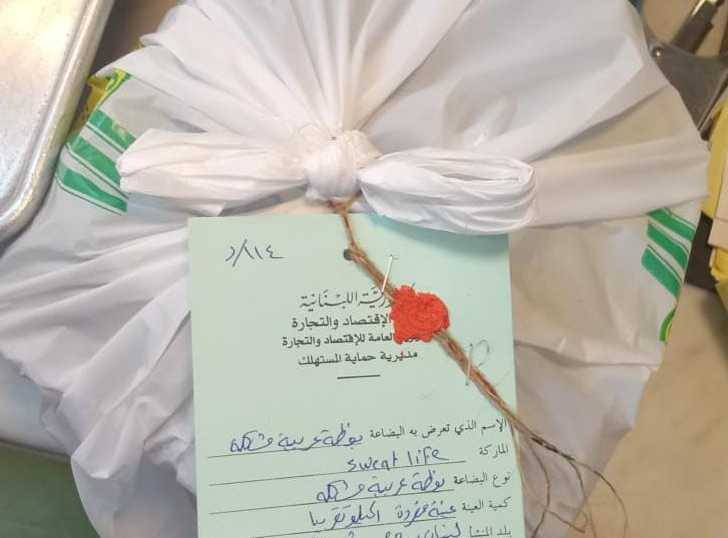 ١١٤/د
الجمهورية اللبنانية
الإقتصاد والتجارة
العامة للإقتصاد والتجارة
مديرية حماية المستهلك
الإسم الذي تعرض به البضاعة بوظة عربية مشكلة
الماركة sweat life
نوع البضاعة بوظة عربية مشكلة
كمية العينة عينة مفردة ١ كيلو تقريبا
بلد المنشأ لبنان